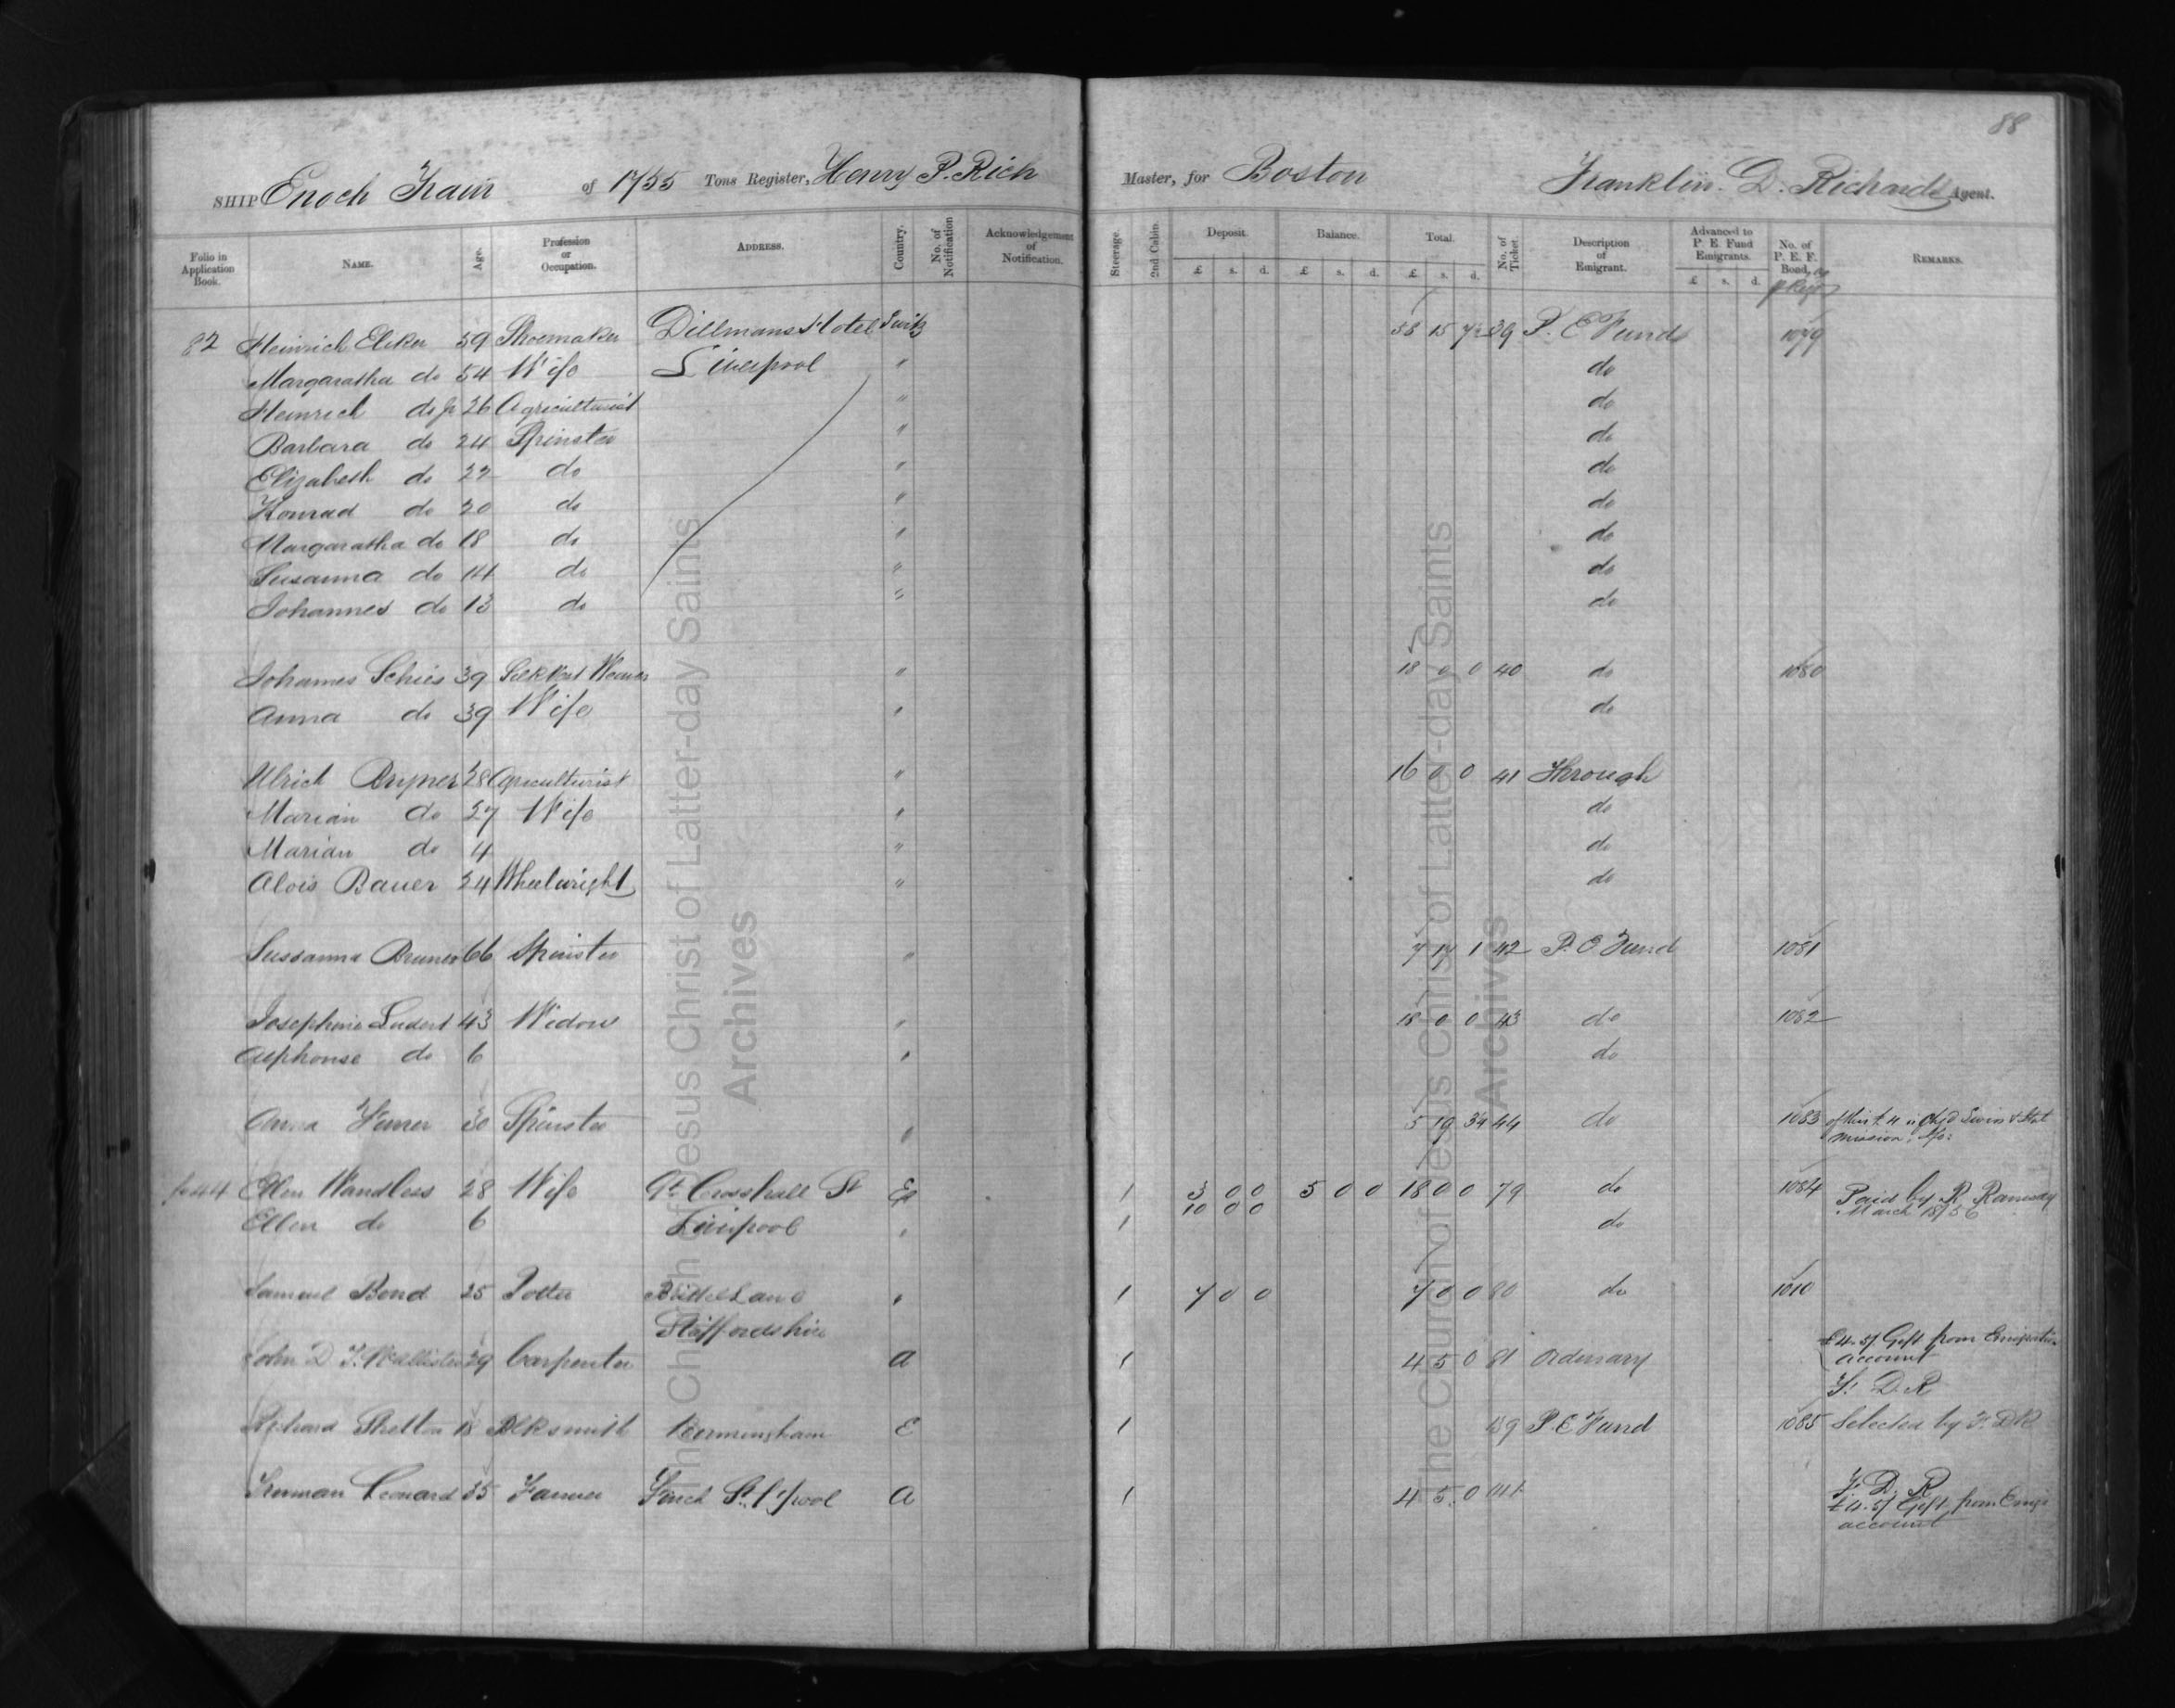 88
SHIP Enoch Train of 1755 Tons Register, Henry P. Rich Master, for Boston Franklin. D. Richards Agent.
Folio in Application Book. NAME. Age. Profession or Occupation. ADDRESS. Country. No. of Notification Acknowledgement of Notification. Steerage. 2nd Cabin. Deposit. £ s. d. Balance. £ s. d. Total. £ s. d. No. of Ticket. Description of Emigrant. Advanced to P E Fund Emigrants. £ s. d. No. of P. E. F. Bond, REMARKS.
82 Heinrich Elcker 59 Shoemaker Dillmans Hotel Switz 58 15 39 P. E Funds 1079
Margaratha do 54 Wife Liverpool " do
Heinrich do jr 26 Agriculturist " do
Barbara do 24 Spinster " do
Elizabeth do 22 do " do
Konrad do 20 do " do
Margaratha do 18 do " do
Susanna do 14 do " do
Johannes do 13 do " do
Johannes Schies 39 Weaver " 18 0 0 40 do 1080
Anna do 39 Wife " do
Ulrich Bryner 28 Agriculturist " 16 0 0 41 Through
Marian do 27 Wife " do
Marian do 4 " do
Alois Bauer 24 Wheelwright " do
Sussanna Bruner 66 Spinster " 7 17 1 42 P. E Fund 1081
Josephine Ludert 43 Widow " 18 0 0 43 do 1082
Alphonse do 6 " do
Anna 30 Spinster " 5 19 44 do 1083 Swiss
mission
p 44 Ellen Wandless 28 Wife Gt Crosshall St E 1 3 0 0 5 0 0 18 0 0 79 do 1084 Paid by R Ramsay
10 0 0 March 1856
Ellen do 6 Liverpool " 1 do
Samuel Bond 25 Potter Lane " 1 7 0 0 7 0 0 80 do 1010
Staffordshire
John D. T. McAllister 29 Carpenter A 1 4 5 0 81 Ordinary £4.5/ Gift from Emigration
account
F. D. R
Richard Shelton 18 Blksmith Birmingham E 1 P. E Fund 1085 Selected by F. D R
Truman Leonard 35 Farmer Finch St L'pool A 1 4 5 0 F. D. R
£4.5/ Gift from Emign
account
The Church of Jesus Christ of Latter-day Saints
Archives
The Church of Jesus Christ of Latter-day Saints
Archives